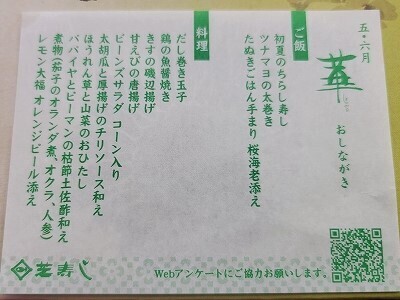 五・六月
おしながき
ご飯
初夏のちらし寿し
ツナマヨの太巻き
たぬきごはん手まり 桜海老添え
料理
だし巻き玉子
鶏の魚醤焼き
きすの磯辺揚げ
甘えびの唐揚げ
ビーンズサラダ コーン入り
太胡瓜と厚揚げのチリソース和え
ほうれん草と山菜のおひたし
パパイヤとピーマンの枯節土佐酢和え
煮物(茄子のオランダ煮、オクラ、人参)
レモン大福 オレンジピール添え
芝寿し
Webアンケートにご協力お願いします。